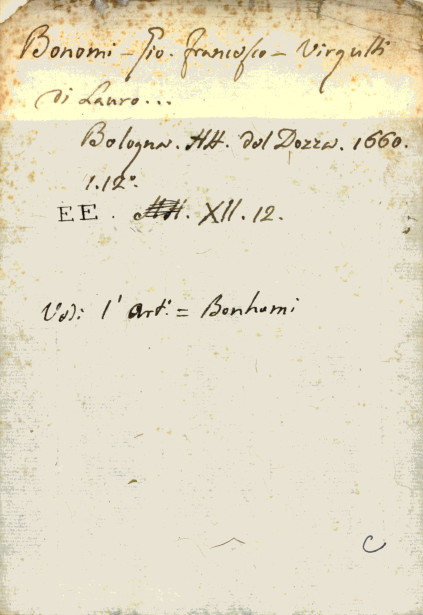 Bonomi - Gio. Francesco - Virgulti
di Lauro...
Bologna. HH. del Dozza. 1660.
1.12°.
EE. XII. 12.
Vedi l'art.° = Bonhomi
C